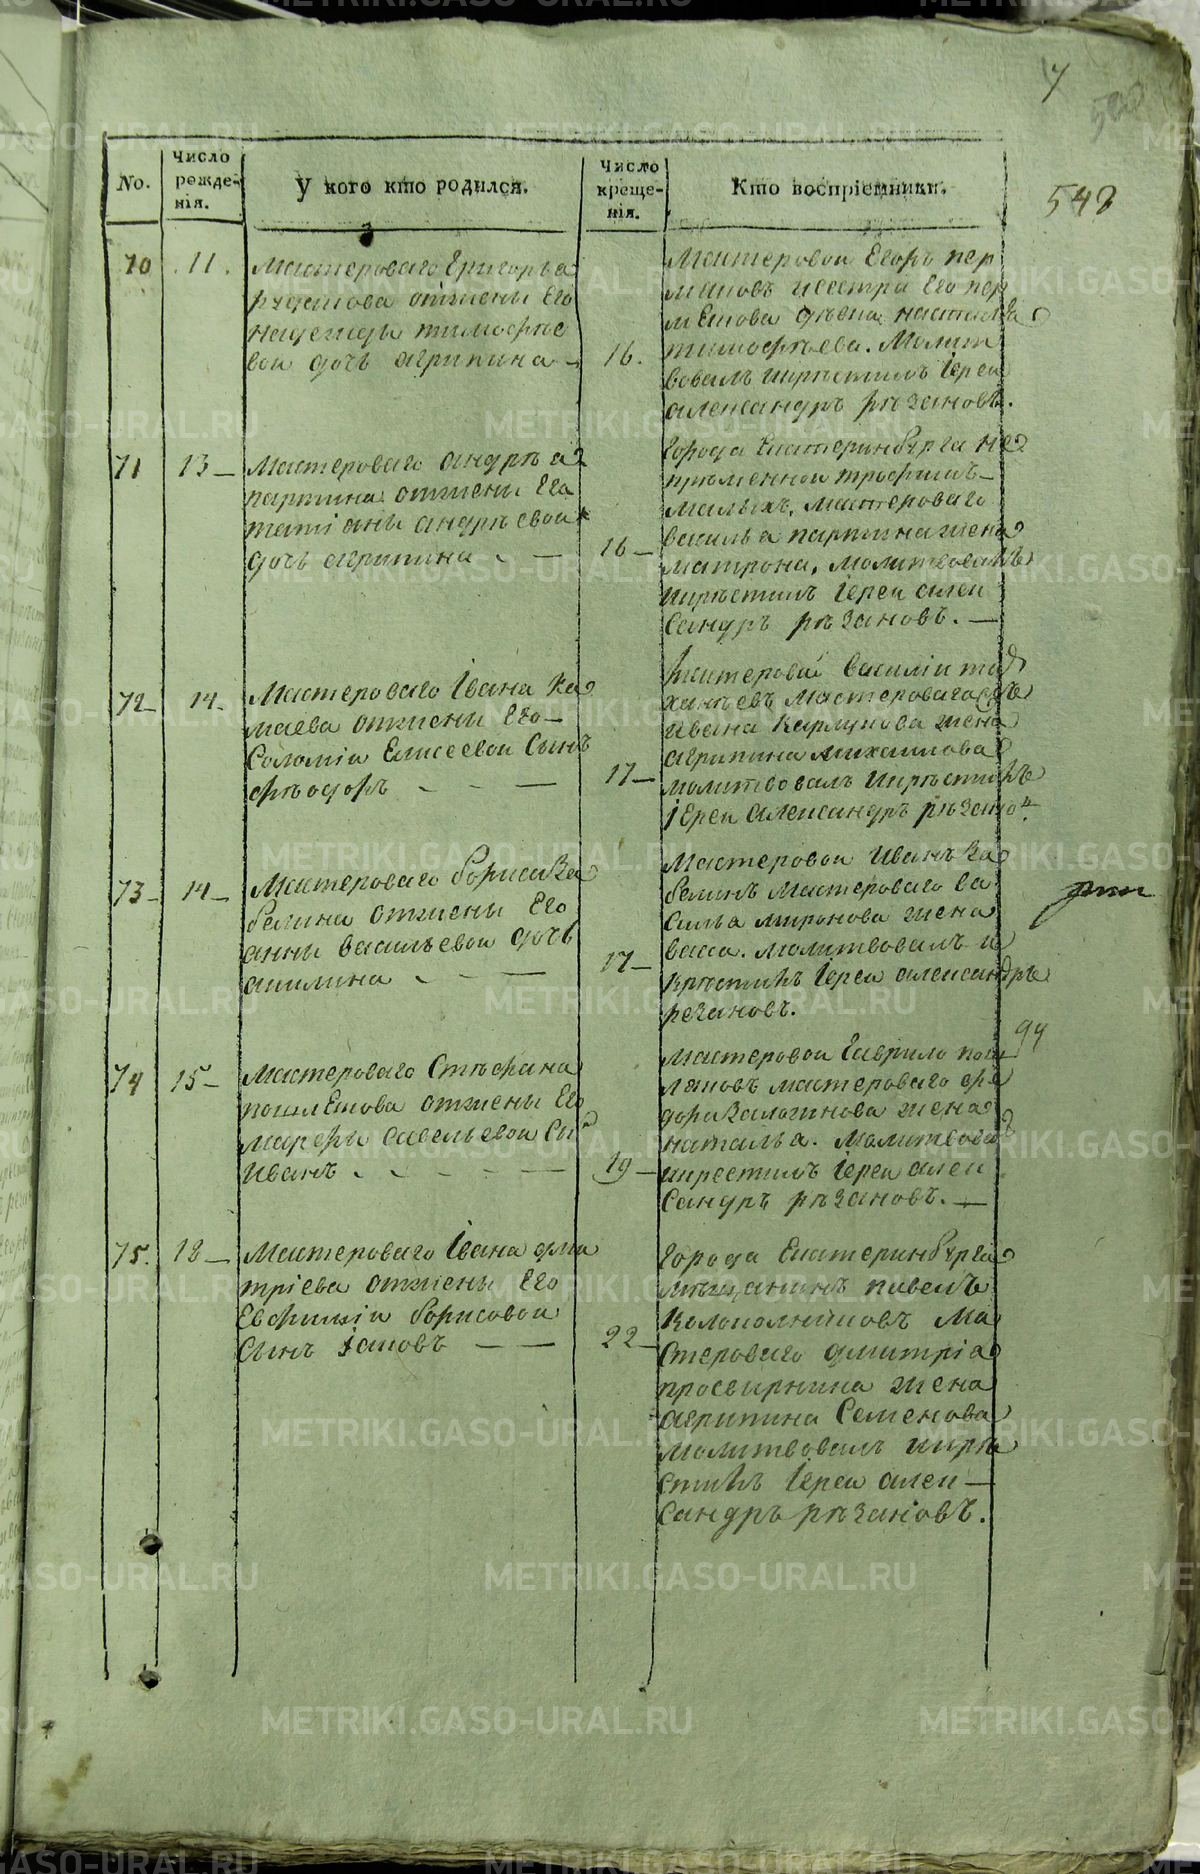 7
542
No.
Число рожде-нія.
У кого кто родился.
Число креще-нія.
Кто воспріемники.
70
11.
Мастероваго Григорья
отжены Его
надежды тимофѣе
вои дочь агрипина
16.
Мастеровои Егоръ пер
миновъ
тимофѣева. Молит
вовалъ икрѣстилъ Іереи
александръ рѣзановъ.
71
13
Мастероваго андрѣа
партина отжены Его
татіаны андрѣевои
дочь агрипина
16
города Екатеринбурга не
прѣменнои трофимъ
малыхъ, мастероваго
василья партина жена
матрона, молитвовалъ
икрѣстилъ Іереи алек
сандръ рѣзановъ.
72
14
Мастероваго Івана Ка
маева отжены Его
Соломіи Елисеевои Сынъ
фѣодоръ
17
Мастеровои василіи
мастероваго
ивана жена
агрипина михаилова
молитвовалъ икрѣстилъ
Іереи александръ рѣзано
73
14
Мастероваго бориса За
белина отжены Его
анны васильевои дочь
акилина
17
Мастеровои иванъ За
белинъ мастероваго ва
силья миронова жена
васса. молитвовалъ и
крѣстилъ Іереи александръ
резановъ.
94
74
15
Мастероваго Стѣфана
отжены Его
марфы савельевои сы
иванъ
19
Мастеровои Гаврило
мастероваго фе
дора Заложинова жена
наталья. молитвова
икрестилъ Іереи алек
сандръ рѣзановъ.
75.
18
Мастероваго Івана дми
тріева отжены Его
Евфиміи борисовои
Сынъ Іаковъ
22
города Екатеринбурга
мѣщанинъ павелъ
Колокольниковъ Ма
стероваго дмитріа
просвирнина жена
агрипина Семенова
молитвовалъ икрѣ
стилъ Іереи алек
сандръ рѣзановъ.
METRIKI.GASO-URAL.RU